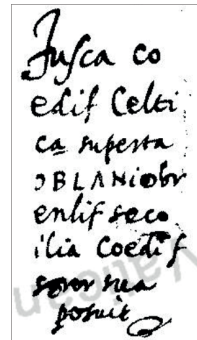 Fusca co
edif Celti
ca supersta
ƆBLANIobr
enlif seco
ilia Coedif
soror sua
posuit